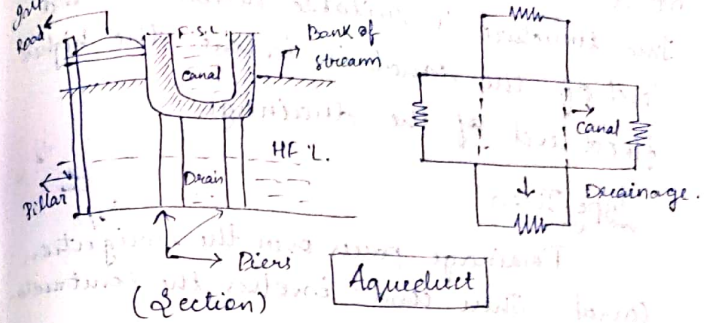 Road
F.S.L.
Canal
Bank of
stream
HFL.
Drain
Pillar
Piers
(Section)
Aqueduct
Canal
Drainage.